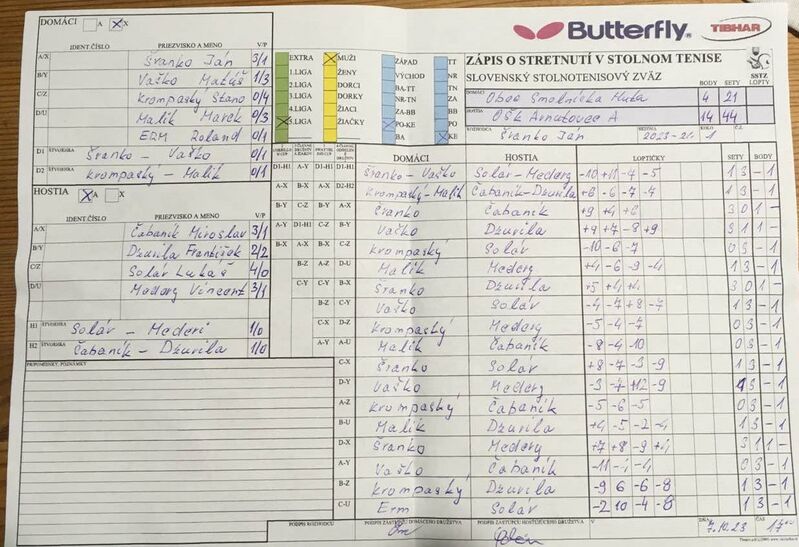 DOMÁCI A X
Butterfly.
TIBHAR
IDENT ČÍSLO PRIEZVISKO A MENO V/P
A/X Šranko Ján 3/1
B/Y Vaško Matúš 1/3
C/Z Krompaský Stano 0/4
D/U Malik Marek 0/3
ERM Roland 0/1
D1 ŠTVORHRA Šranko - Vaško 0/1
D2 ŠTVORHRA Krompaský - Malik 0/1
EXTRA MUŽI ZÁPAD TT
1.LIGA ŽENY VÝCHOD NR
2.LIGA DORCI BA-TT TN
3.LIGA DORKY NR-TN ZA
4.LIGA ŽIACI ZA-BB BB
5.LIGA ŽIAČKY PO-KE PO
BA KE
ZÁPIS O STRETNUTÍ V STOLNOM TENISE
SLOVENSKÝ STOLNOTENISOVÝ ZVÄZ
SSTZ
BODY SETY LOPTY
DOMÁCI Obec Smolnícka Huta 4 21
HOSTIA OŠK Arnutovce A 14 44
ROZHODCA Šranko Ján SEZÓNA KOLO 1 Č.Z.
HOSTIA A X
IDENT ČÍSLO PRIEZVISKO A MENO V/P
A/X Čabaník Miroslav 3/1
B/Y Dzurila František 2/2
C/Z Solár Lukáš 4/0
D/U Mederg Vincent 3/1
H1 ŠTVORHRA Solár - Mederi 1/0
H2 ŠTVORHRA Čabaník - Dzurila 1/0
PRIPOMIENKY, POZNÁMKY
DOMÁCI HOSTIA LOPTIČKY SETY BODY
D1-H1 Šranko - Vaško Solár - Mederg -10 +11 -4 -5 1 3 - 1
D2-H2 Krompaský-Malik Čabaník-Dzurila +8 -6 -7 -7 1 3 - 1
A-X Šranko Čabaník +9 +4 +6 3 0 1 -
Vaško Dzurila +9 +7 -8 +9 3 1 1 -
Krompaský Solár -10 -6 -7 0 3 - 1
D-U Malik Mederg +4 -6 -9 -4 1 3 - 1
B-X Šranko Dzurila +5 +4 +4 3 0 1 -
C-Y Vaško Solár -4 -7 +8 -7 1 3 - 1
D-Z Krompaský Mederg -5 -4 -7 0 3 - 1
A-U Malik Čabaník -8 -4 10 0 3 - 1
C-X Šranko Solár +8 -7 -3 -9 1 3 - 1
D-Y Vaško Mederg -3 -7 +12 -9 1 3 - 1
A-Z Krompaský Čabaník -5 -6 -5 0 3 - 1
B-U Malik Dzurila +4 -5 -2 -4 1 3 - 1
D-X Šranko Mederg +7 +8 -9 +4 3 1 1 -
A-Y Vaško Čabaník -11 -4 0 3 - 1
B-Z Krompaský Dzurila -9 6 -6 -8 1 3 - 1
C-U Erm Solár -2 10 -4 -8 1 3 - 1
PODPIS ROZHODCU PODPIS ZÁSTUPCU DOMÁCEHO DRUŽSTVA PODPIS ZÁSTUPCU HOSŤUJÚCEHO DRUŽSTVA V DŇA 7.10.23 ČAS 17